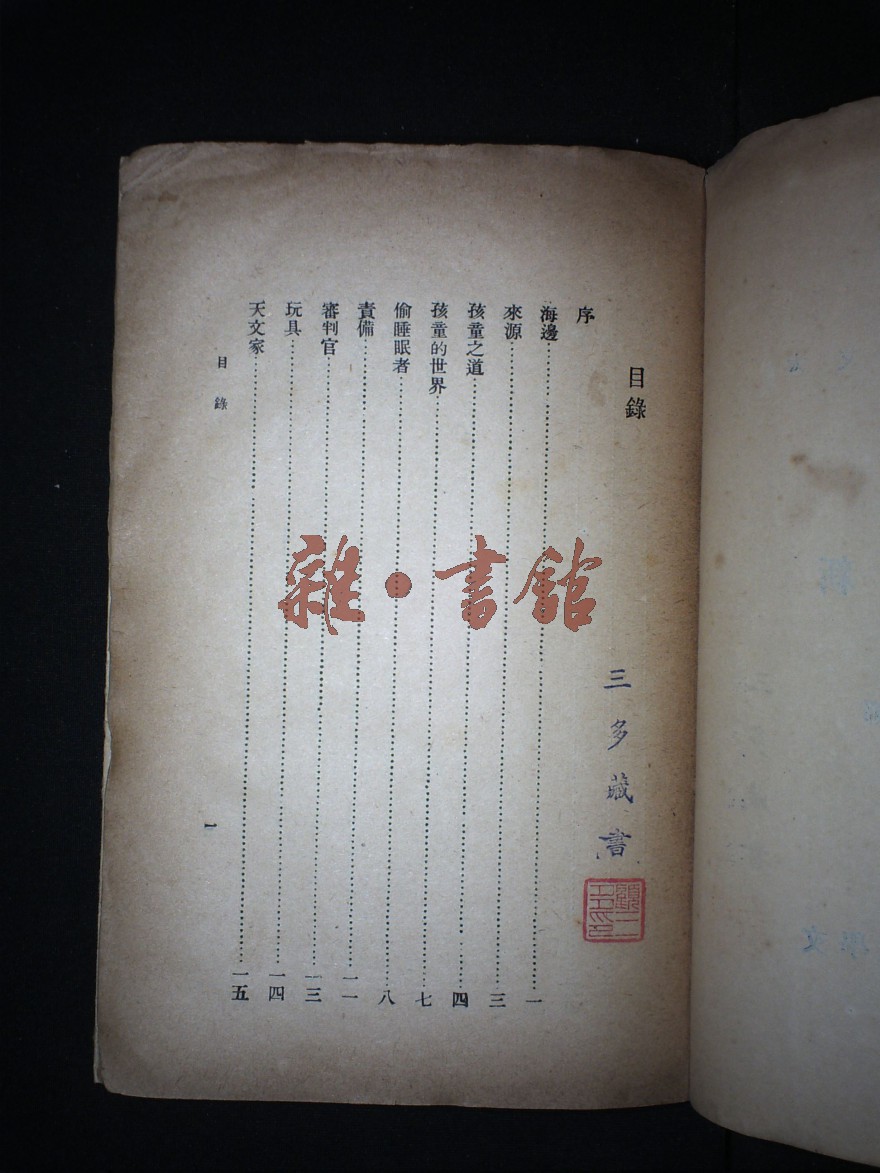 目錄
序
海邊……一
來源……三
孩童之道……四
孩童的世界……七
偷睡眠者……八
責備……一一
審判官……一三
玩具……一四
天文家……一五
目錄
一
三多藏書
雜·書館